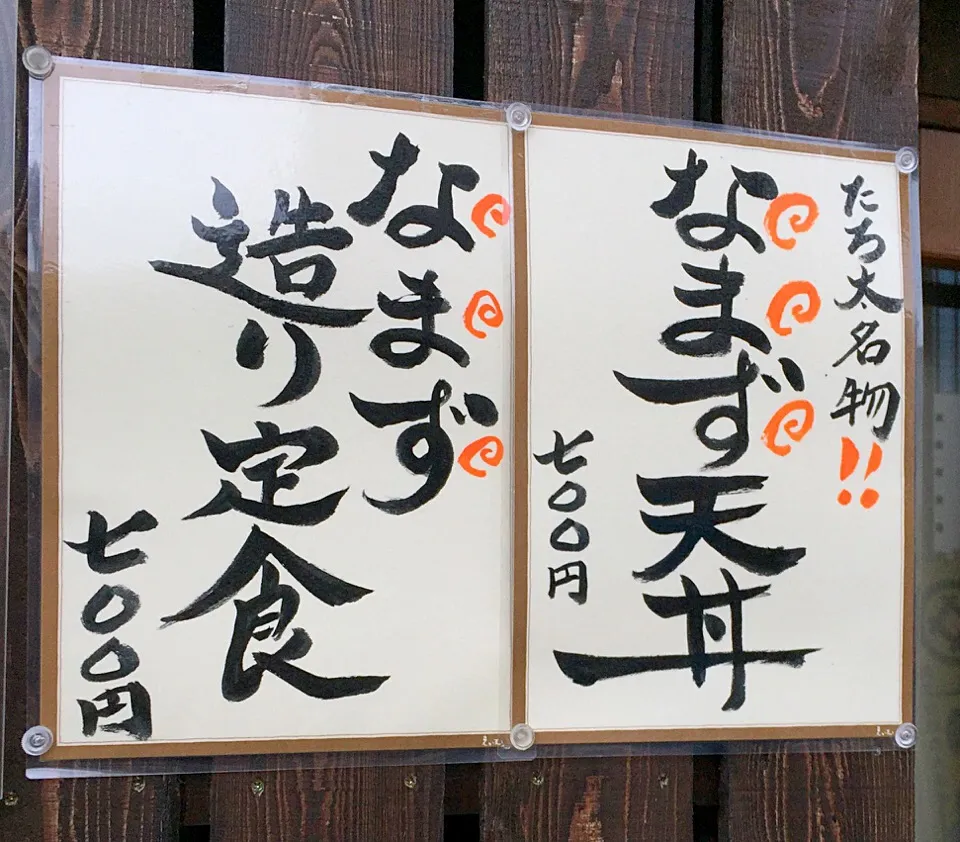 たち太名物!!
なまず天丼
七〇〇円
なまず
造り定食
七〇〇円